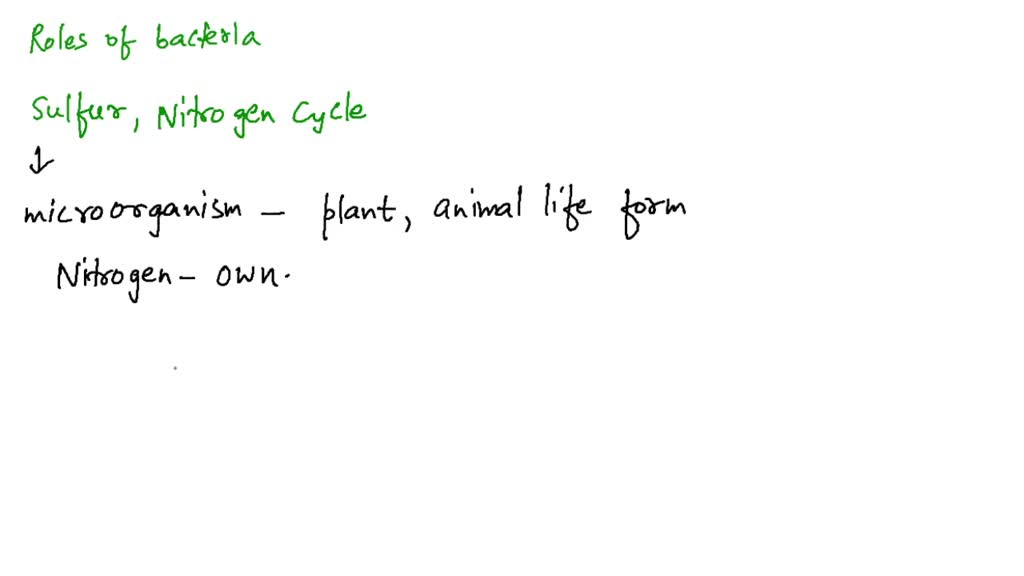 Roles of bacteria
Sulfur, Nitrogen Cycle
↓
microorganism - plant, animal life form
Nitrogen - own.